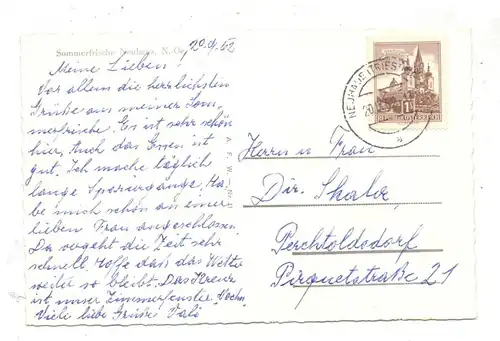 Sommerfrische Neuhaus, N.-Oe.
20.9.62
Meine Lieben!
Vor allem die herzlichsten
Grüße aus meiner Som-
merfrische. Es ist sehr schön
hier, Auch das Essen ist
gut. Ich mache täglich
lange Spaziergänge, Ha-
be mich schon an einer
lieben Frau angeschlossen.
Da vergeht die Zeit sehr
schnell. Hoffe daß das Wetter
weiter so bleibt. Das Kreuz
ist unser Zimmerfenster.
Viele liebe Grüße Vali
NEUHAUS
REPUBLIK ÖSTERREICH
Herrn u. Frau
Dir. Skala,
Perchtoldsdorf
Pirquetstraße 21